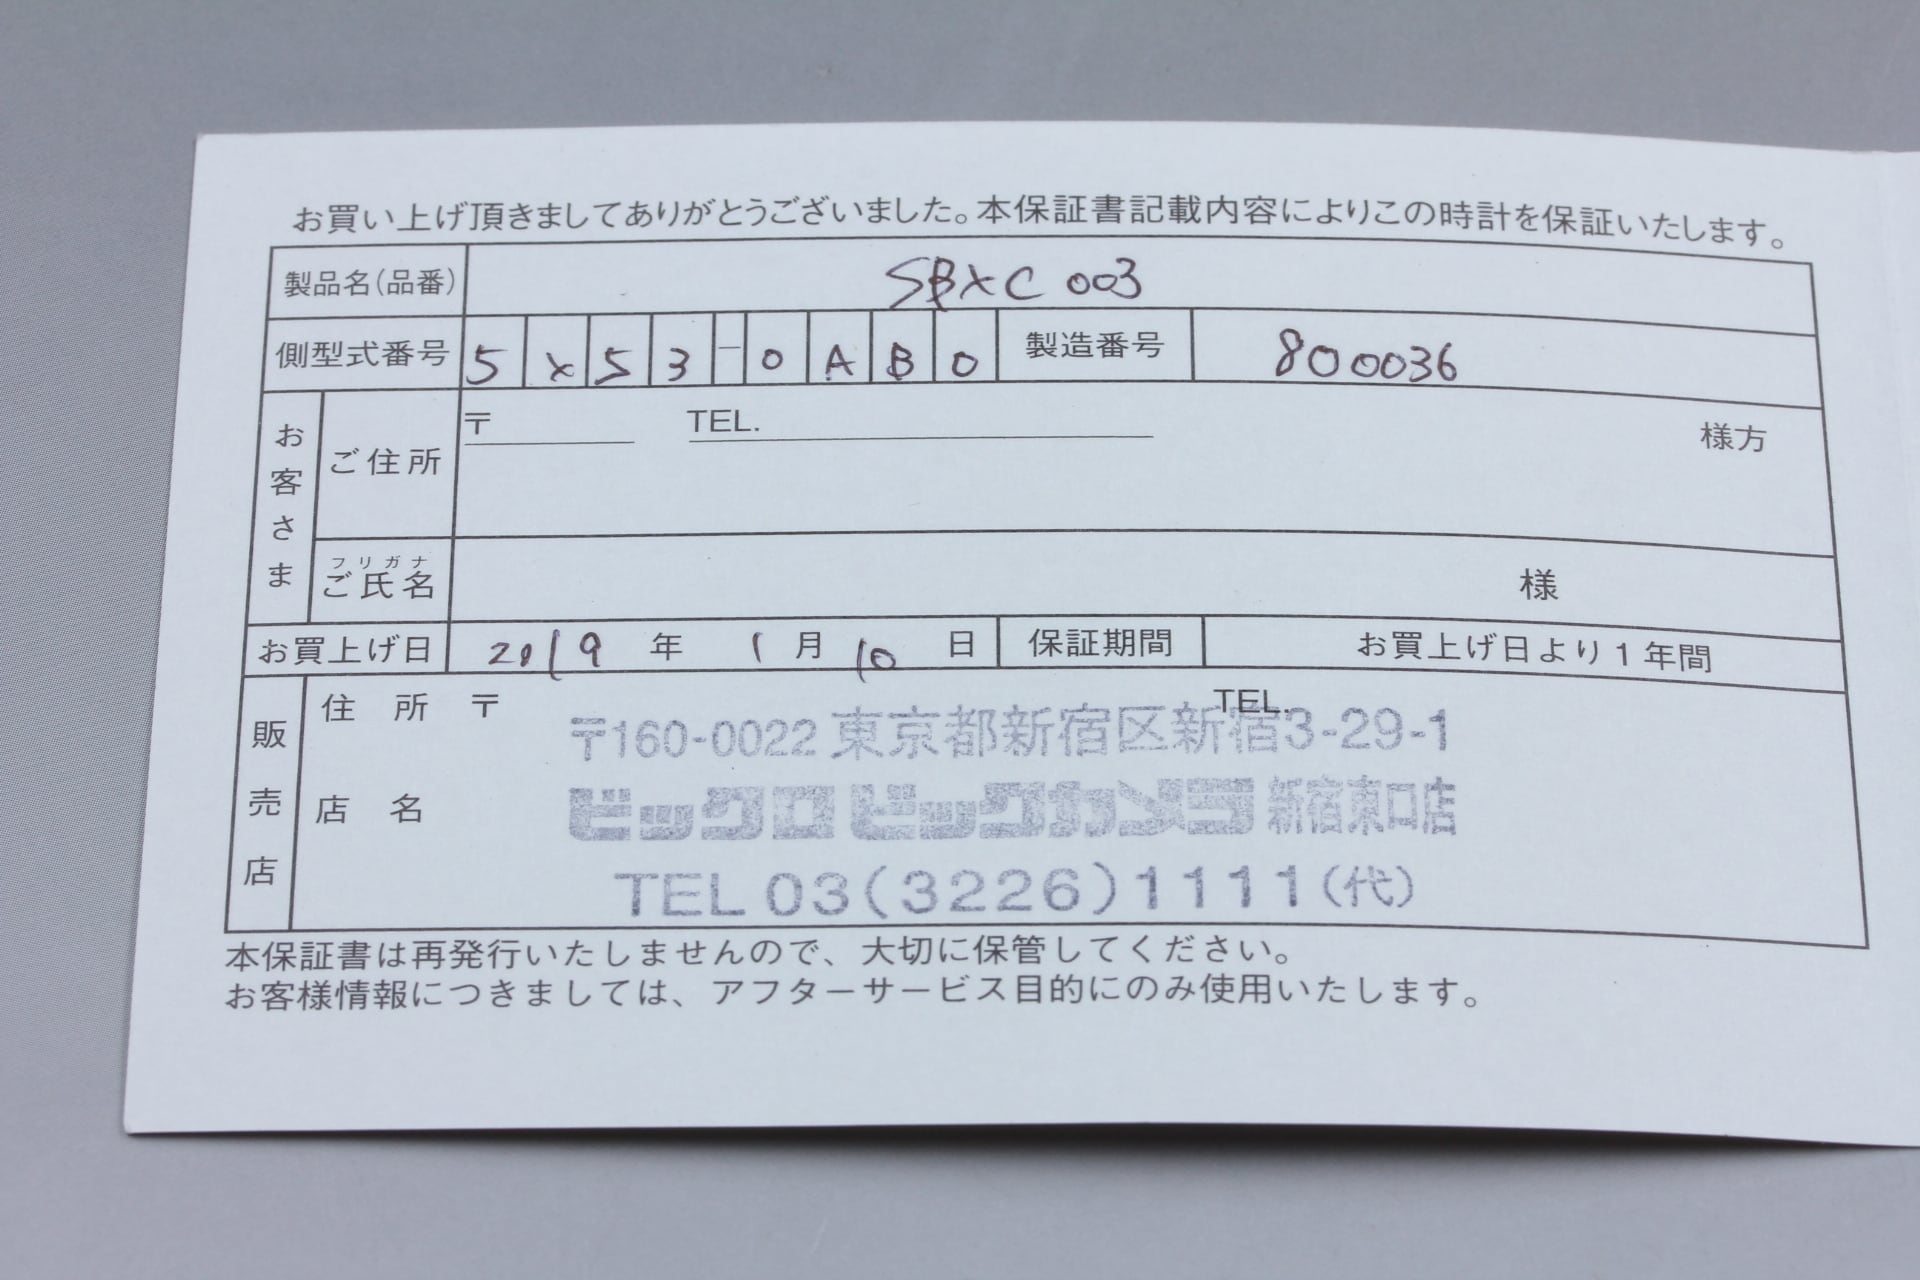 お買い上げ頂きましてありがとうございました。本保証書記載内容によりこの時計を保証いたします。
製品名(品番) SBXC 003
側型式番号 5X53-0AB0 製造番号 800036
お客さま
ご住所 〒 TEL. 様方
フリガナ
ご氏名 様
お買上げ日 2019年1月10日 保証期間 お買上げ日より1年間
販売店
住所 〒 TEL.
〒160-0022 東京都新宿区新宿3-29-1
店名 ビックロ ビックカメラ 新宿東口店
TEL 03(3226)1111(代)
本保証書は再発行いたしませんので、大切に保管してください。
お客様情報につきましては、アフターサービス目的にのみ使用いたします。